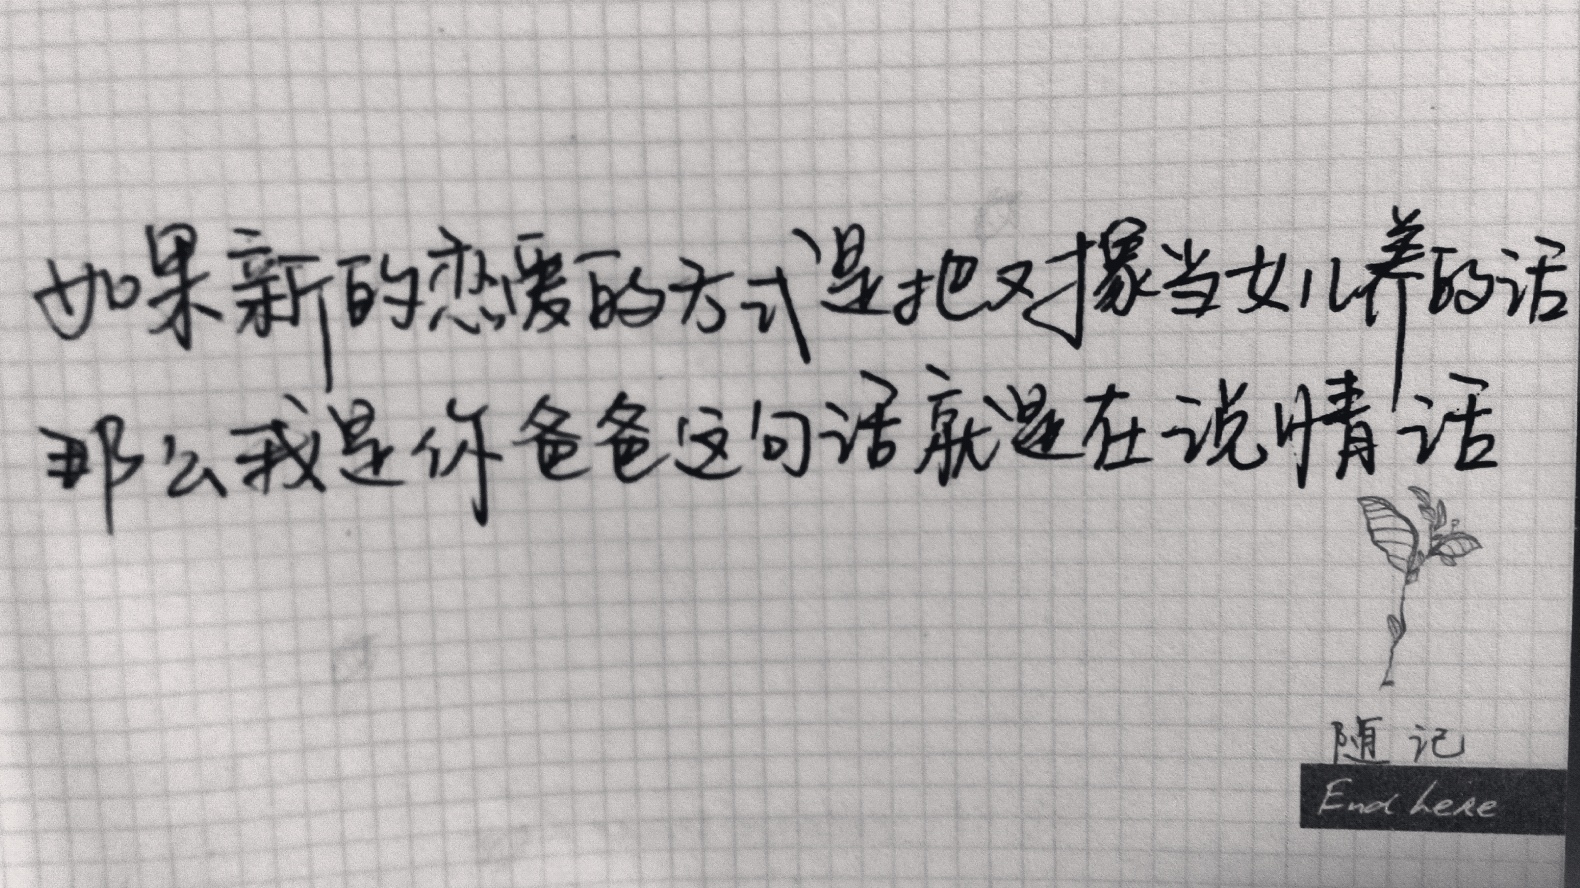 如果新的恋爱的方式是把对象当女儿养的话
那么我是你爸爸这句话就是在说情话
随记
End here